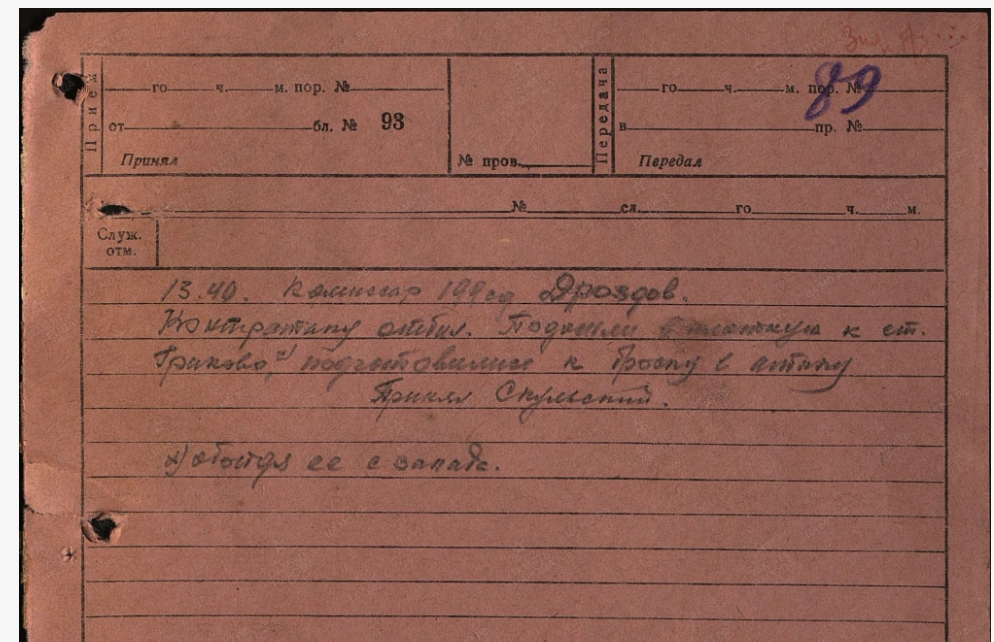 Прием
го ч. м. пор. №
от бл. № 93
Принял
№ пров.
Передача
го ч. м. пор. №
89
в пр. №
Передал
№ сл. го ч. м.
Служ.
отм.
13.40. Комиссар 199 сд Дроздов.
Контратаку отбил. Подошли вплотную к ст.
Граково,х) подготовились к броску в атаку
Принял Скульский.
х) обойдя ее с запада.